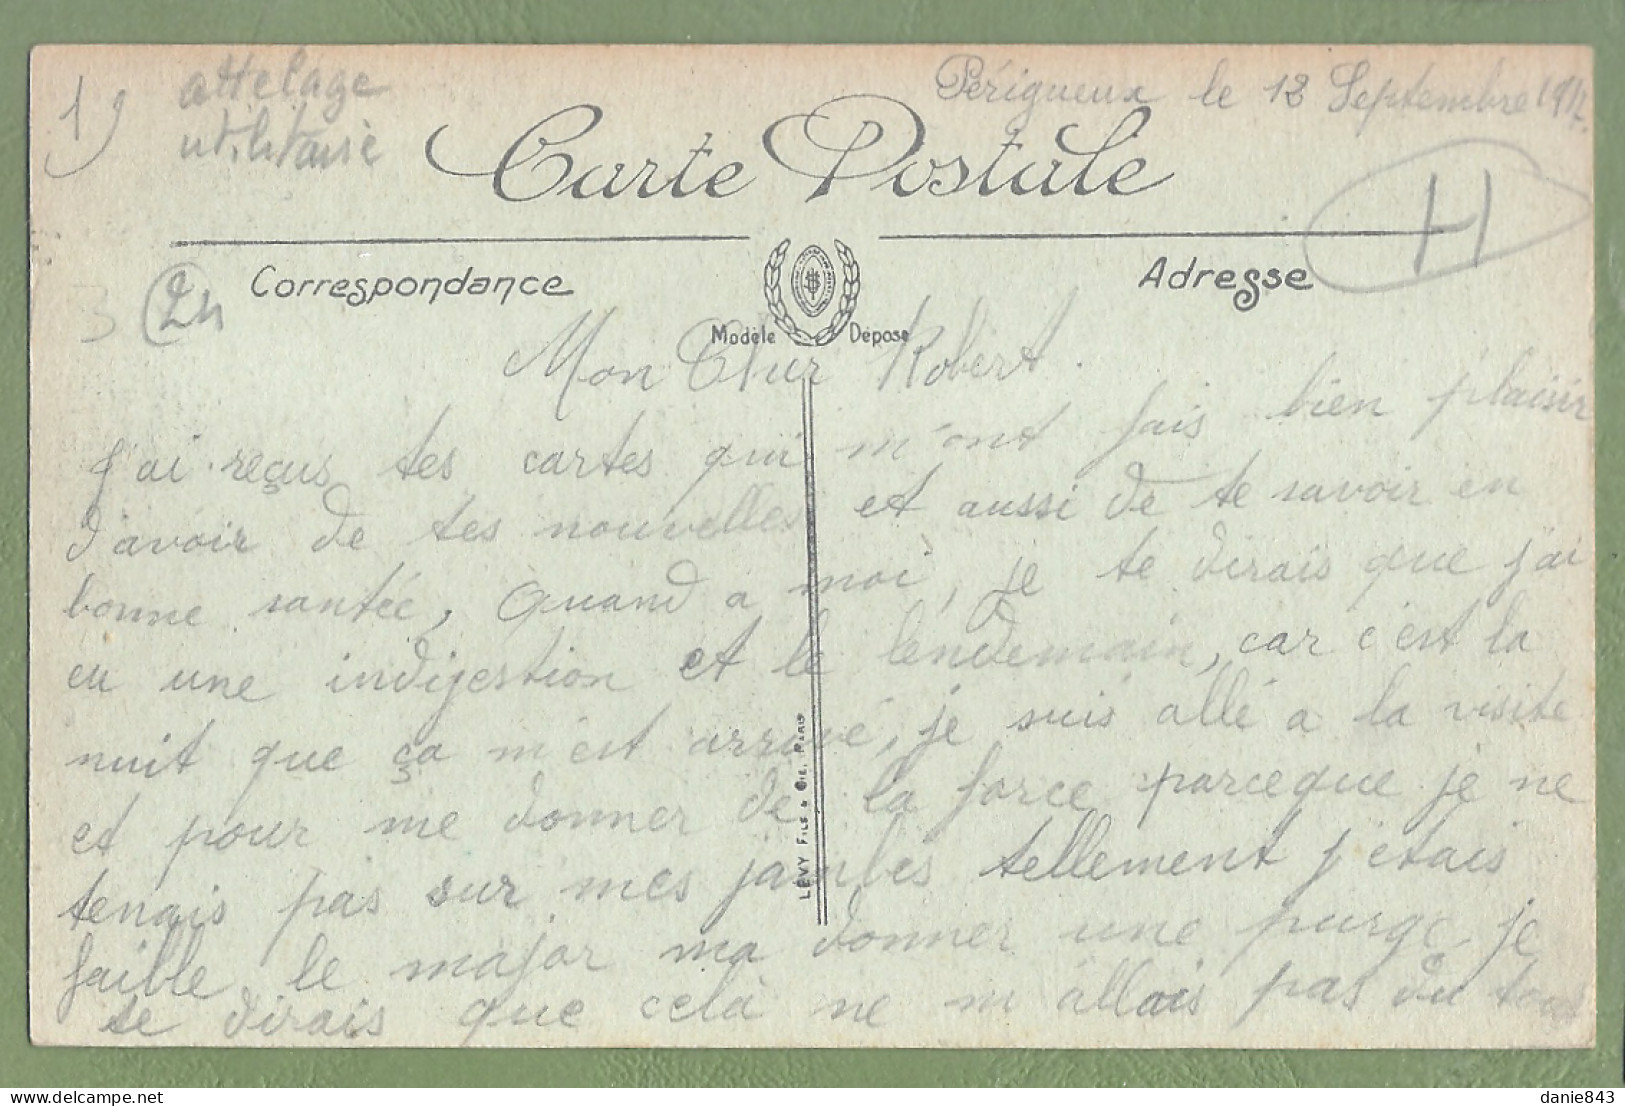 1)
attelage
utilitaire
Périgueux le 12 Septembre 1917.
Carte Postale
H
3
24
Correspondance
Adresse
Modèle Déposé
Mon Cher Robert.
J'ai reçus tes cartes qui m'ont fais bien plaisir
d'avoir de tes nouvelles et aussi de te savoir en
bonne santée, Quand a moi, je te dirais que j'ai
eu une indigestion et le lendemain, car c'est la
nuit que ça m'est arrivé, je suis allé a la visite
et pour me donner de la force parceque je ne
tenais pas sur mes jambes tellement j'etais
faible, le major ma donner une purge, je
te dirais que celà ne m'allais pas du tous
LÉVY FILS & CIE, PARIS
danie843